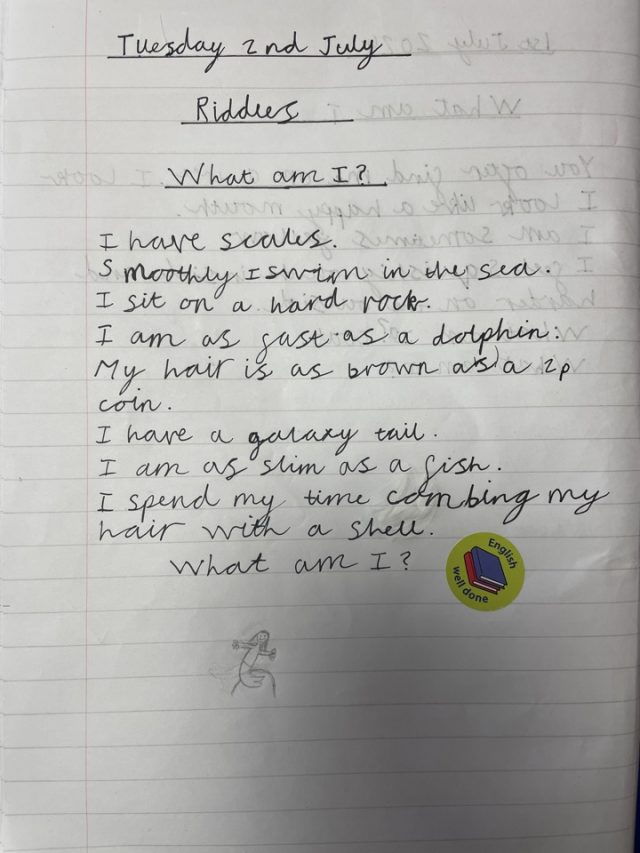 Tuesday 2nd July
Riddles
What am I?
I have scales.
Smoothly I swim in the sea.
I sit on a hard rock.
I am as fast as a dolphin.
My hair is as brown as a 2p
coin.
I have a galaxy tail.
I am as slim as a fish.
I spend my time combing my
hair with a shell.
What am I?
English
well done